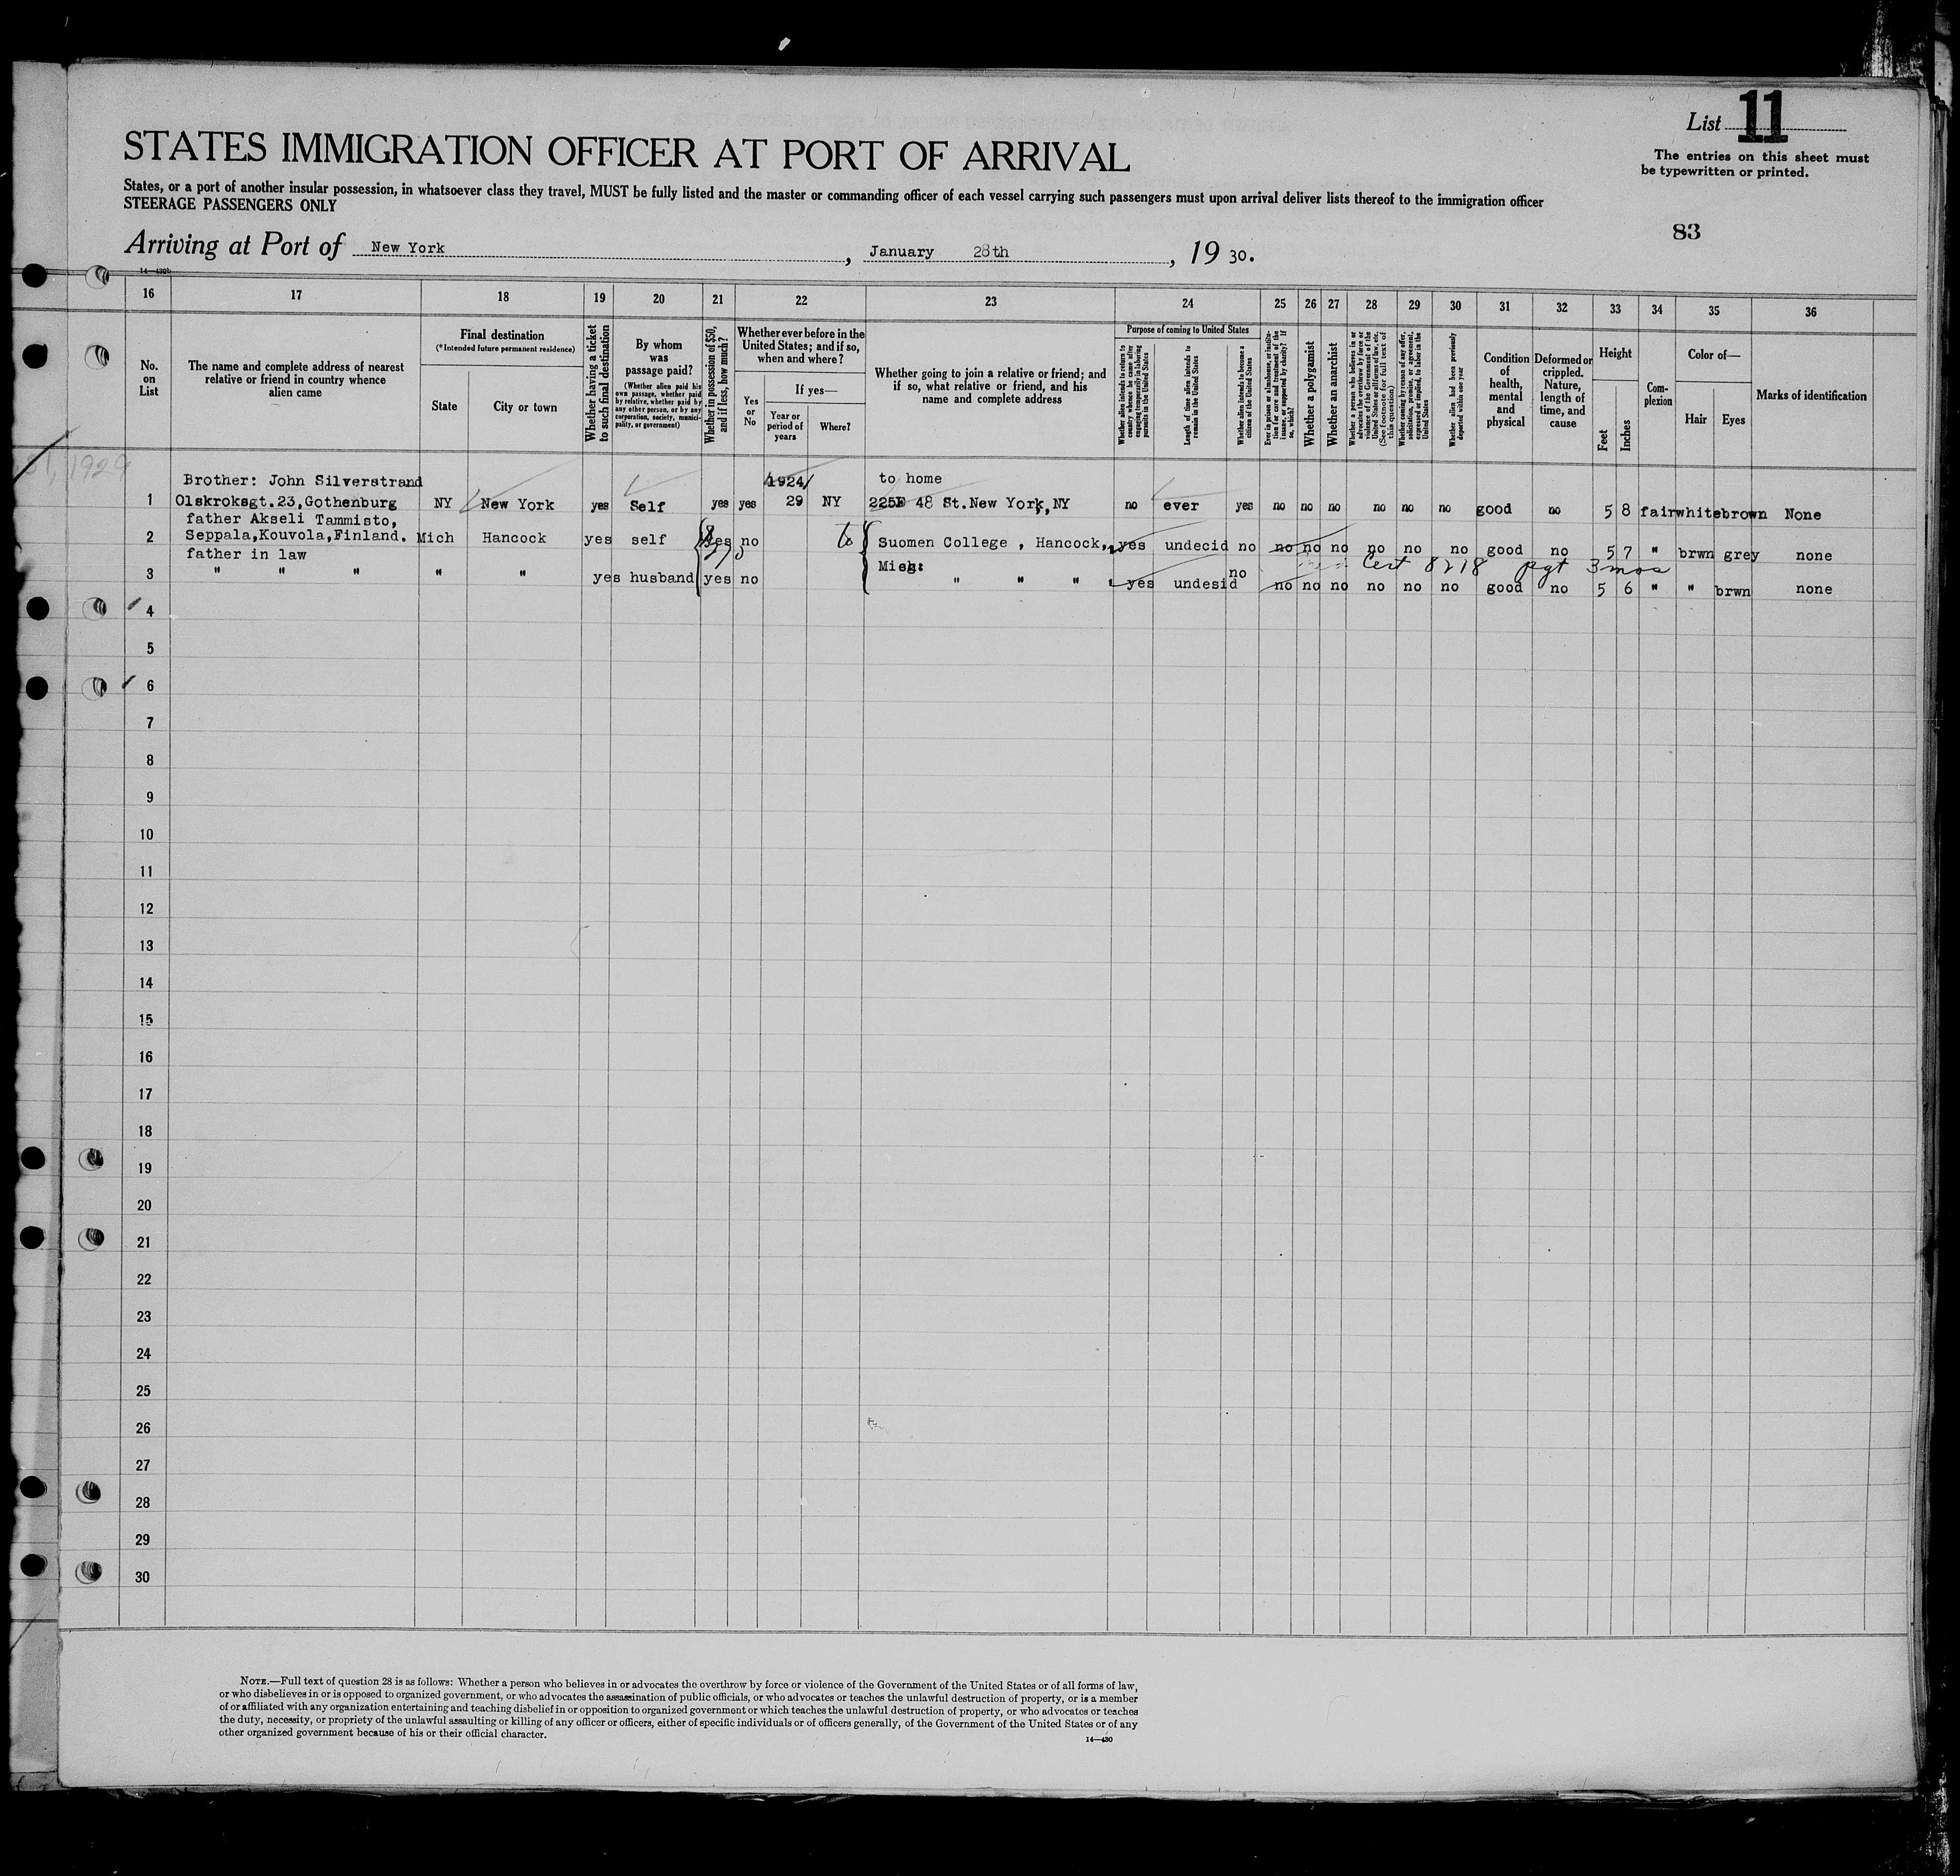 List 11
The entries on this sheet must
be typewritten or printed.
STATES IMMIGRATION OFFICER AT PORT OF ARRIVAL
States, or a port of another insular possession, in whatsoever class they travel, MUST be fully listed and the master or commanding officer of each vessel carrying such passengers must upon arrival deliver lists thereof to the immigration officer
STEERAGE PASSENGERS ONLY
83
Arriving at Port of New York, January 28th, 19 30.
14—430b
16 17 18 19 20 21 22 23 24 25 26 27 28 29 30 31 32 33 34 35 36
No. on List
The name and complete address of nearest
relative or friend in country whence
alien came
Final destination
(*Intended future permanent residence)
State
City or town
Whether having a ticket
to such final destination
By whom
was
passage paid?
(Whether alien paid his
own passage, whether paid
by relative, whether paid by
any other person, or by any
corporation, society, munici-
pality, or government)
Whether in possession of $50,
and if less, how much?
Whether ever before in the
United States; and if so,
when and where?
Yes
or
No
If yes—
Year or
period of
years
Where?
Whether going to join a relative or friend; and
if so, what relative or friend, and his
name and complete address
Purpose of coming to United States
Whether alien intends to return to
country whence he came after
engaging temporarily in laboring
pursuits in the United States
Length of time alien intends to
remain in the United States
Whether alien intends to become a
citizen of the United States
Ever in prison or almshouse, or institu-
tion for care and treatment of the
insane, or supported by charity? If
so, which?
Whether a polygamist
Whether an anarchist
Whether a person who believes in or
advocates the overthrow by force or
violence of the Government of the
United States or all forms of law, etc.
(See footnote for full text of
this question)
Whether coming by reason of any offer,
solicitation, promise, or agreement,
expressed or implied, to labor in the
United States
Whether alien had been previously
deported within one year
Condition
of
health,
mental
and
physical
Deformed or
crippled.
Nature,
length of
time, and
cause
Height
Feet
Inches
Com-
plexion
Color of—
Hair
Eyes
Marks of identification
1929
Brother: John Silverstrand 1924/ to home
1 Olskroksgt.23,Gothenburg NY New York yes Self yes yes 29 NY 225E 48 St.New York,NY no ever yes no no no no no no good no 5 8 fair white brown None
father Akseli Tammisto,
2 Seppala,Kouvola,Finland. Mich Hancock yes self yes no to Suomen College , Hancock, yes undecid no no no no no no no good no 5 7 " brwn grey none
father in law Mich: Cert 8218 pgt 3 mos
3 " " " " " yes husband yes no " " " yes undesid no no no no no no no good no 5 6 " " brwn none
4
5
6
7
8
9
10
11
12
13
14
15
16
17
18
19
20
21
22
23
24
25
26
27
28
29
30
NOTE.—Full text of question 28 is as follows: Whether a person who believes in or advocates the overthrow by force or violence of the Government of the United States or of all forms of law,
or who disbelieves in or is opposed to organized government, or who advocates the assassination of public officials, or who advocates or teaches the unlawful destruction of property, or is a member
of or affiliated with any organization entertaining and teaching disbelief in or opposition to organized government or which teaches the unlawful destruction of property, or who advocates or teaches
the duty, necessity, or propriety of the unlawful assaulting or killing of any officer or officers, either of specific individuals or of officers generally, of the Government of the United States or of any
other organized government because of his or their official character.
14—430